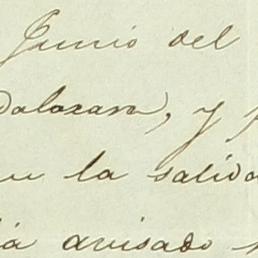 Junio del
dalaxara, y p
la salida
ia avisado